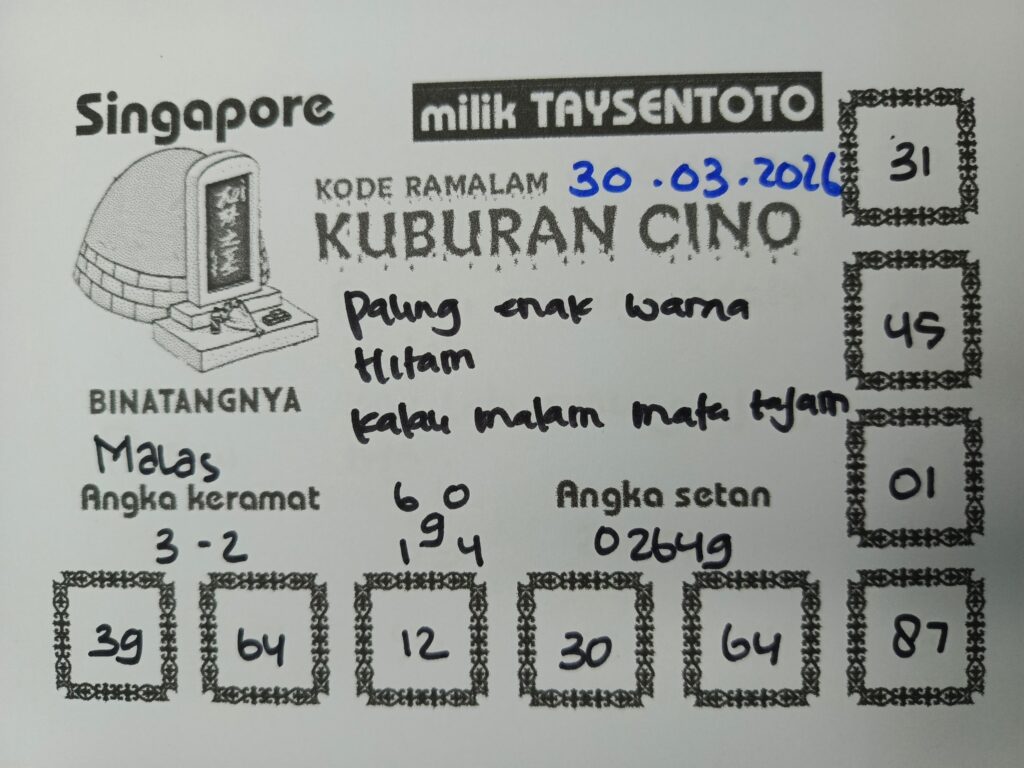 Singapore
milik TAYSENTOTO
KODE RAMALAM 30.03.2026
KUBURAN CINO
Paling enak warna
Hitam
kalau malam mata tajam
BINATANGNYA
Malas
Angka keramat
3-2
6 0
9
1 4
Angka setan
02649
31
45
01
39 64 12 30 64 87